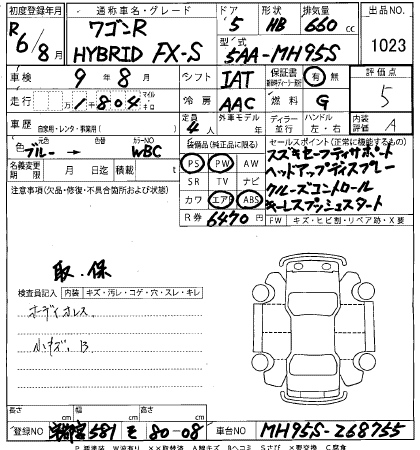 初度登録年月 通称車名・グレード ドア 形状 排気量 出品NO.
R6/8月 ワゴンR HYBRID FX-S 5 HB 660cc 1023
型式 5AA-MH95S
車検 9年8月 シフト IAT 保証書 有 無 評価点
走行 1804 マイル キロ 冷房 AAC 燃料 G 5
車歴 自家用・レンタ・事業用( ) 定員 4人 外車モデル年 ディーラー 並行 ハンドル 左・右 内装評価 A
色 ブルー→ カラーNO WBC 装備品(純正品に限る) セールスポイント(正常に機能するもの)
名義変更期限 月 日迄 積載 t PS PW AW
注意事項(欠品・修復・不具合箇所および状態) SR TV ナビ
カワ エアB ABS
R券 6470円
スズキセーフティサポート
ヘッドアップディスプレー
クルーズコントロール
キーレスプッシュスタート
FW キズ・ヒビ割・リペア跡・X要
取.保
検査員記入 内装 キズ・汚レ・コゲ・穴・スレ・キレ
小キズ B
長さ cm 幅 cm 高さ cm
登録NO 宇都宮 581 を 80-08 車台NO MH95S-268755